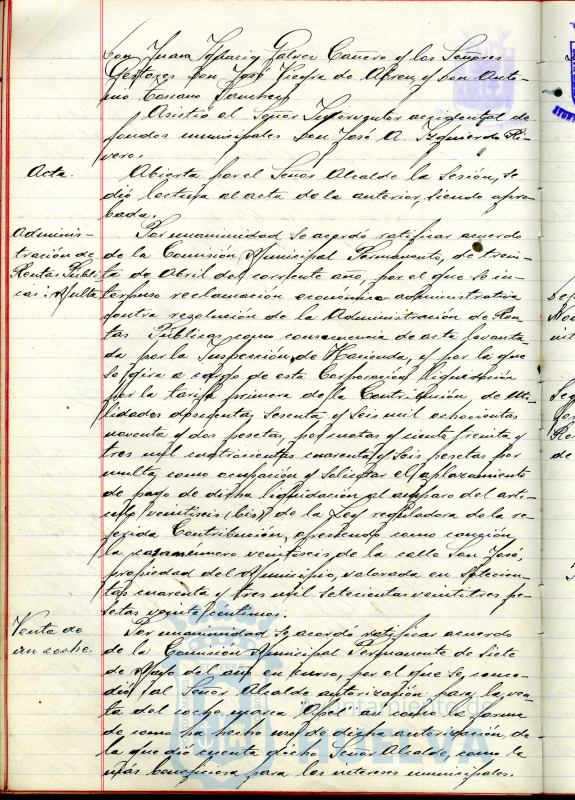 Don Juan Ignacio Galvez Cañero y los Señores
Gestores Don José Fiegra de Abreu y Don Anto-
nio Cossano Sanchez
Asistió el Señor Interventor accidental de
fondos municipales Don José A. Izquierdo Ri-
vero.
Acta.
Abierta por el Señor Alcalde la Sesión, se
dió lectura al acta de la anterior, siendo apro-
bada.
Adminis-
tración de
Rentas Públi-
cas: Multa
Por unanimidad se acordó ratificar acuerdo
de la Comisión Municipal Permanente, de trein-
ta de Abril del corriente año, por el que se in-
terpuso reclamación económico administrativa
contra resolución de la Administración de Ren-
tas Públicas como consecuencia de acta levanta-
da por la Inspección de Hacienda, y por la que
se gira a cargo de esta Corporación liquidación
por la tarifa primera de la Contribución de Uti-
lidades doscientas sesenta y seis mil ochocientas
noventa y dos pesetas, por cuotas y ciento treinta y
tres mil cuatrocientas cuarenta y seis pesetas por
multa, como ocupación y solicitar el aplazamiento
de pago de dicha liquidación al amparo del artí-
culo veintiseis (bis) de la Ley reguladora de la re-
ferida Contribución, ofreciendo como caución
la casa número veintiseis de la calle San José,
propiedad del Municipio, valorada en setecien-
tas cuarenta y tres mil setecientas veintitres pe-
setas veinte céntimos.
Venta de
un coche.
Por unanimidad se acordó ratificar acuerdo
de la Comisión Municipal Permanente de siete
de Mayo del año en curso, por el que se conce-
dió al Señor Alcalde autorización para la ven-
ta del coche marca Opel así como la forma
de como ha hecho uso de dicha autorización, de
la que dió cuenta dicho Señor Alcalde, como la
más beneficiosa para los intereses municipales.
Ayuntamiento de
HUELVA